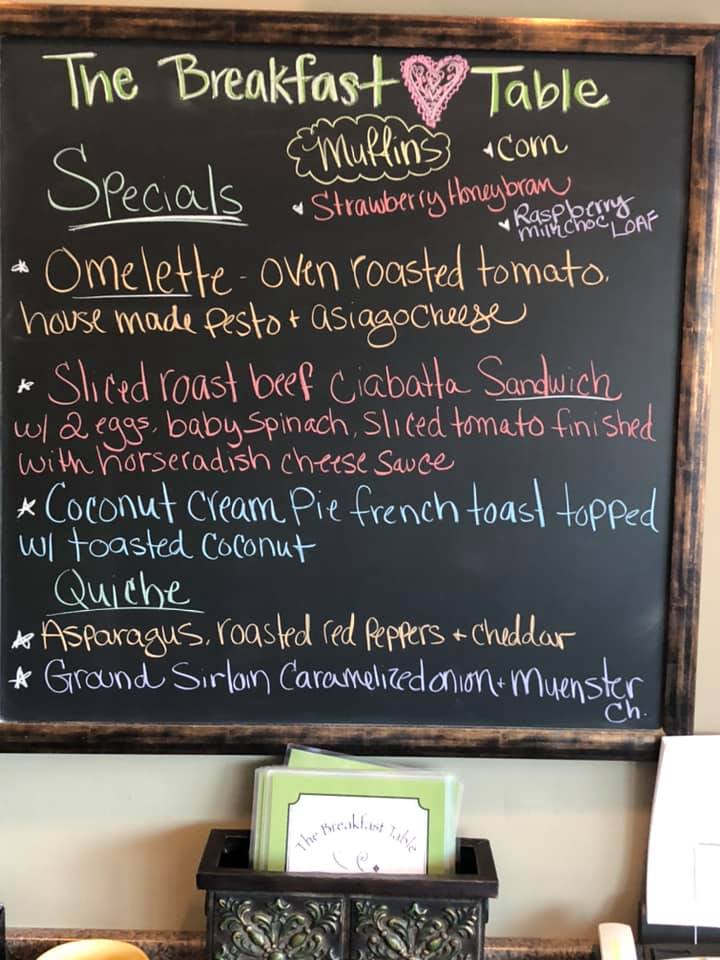 The Breakfast Table
Muffins
Corn
Strawberry Honeybran
Raspberry
milk choc LOAF
Specials
Omelette - oven roasted tomato,
house made pesto + asiago cheese
Sliced roast beef Ciabatta Sandwich
w/ 2 eggs, baby spinach, sliced tomato finished
with horseradish cheese sauce
Coconut Cream Pie french toast topped
w/ toasted coconut
Quiche
Asparagus, roasted red peppers + cheddar
Ground Sirloin Caramelized onion + Muenster
Ch.
The Breakfast Table